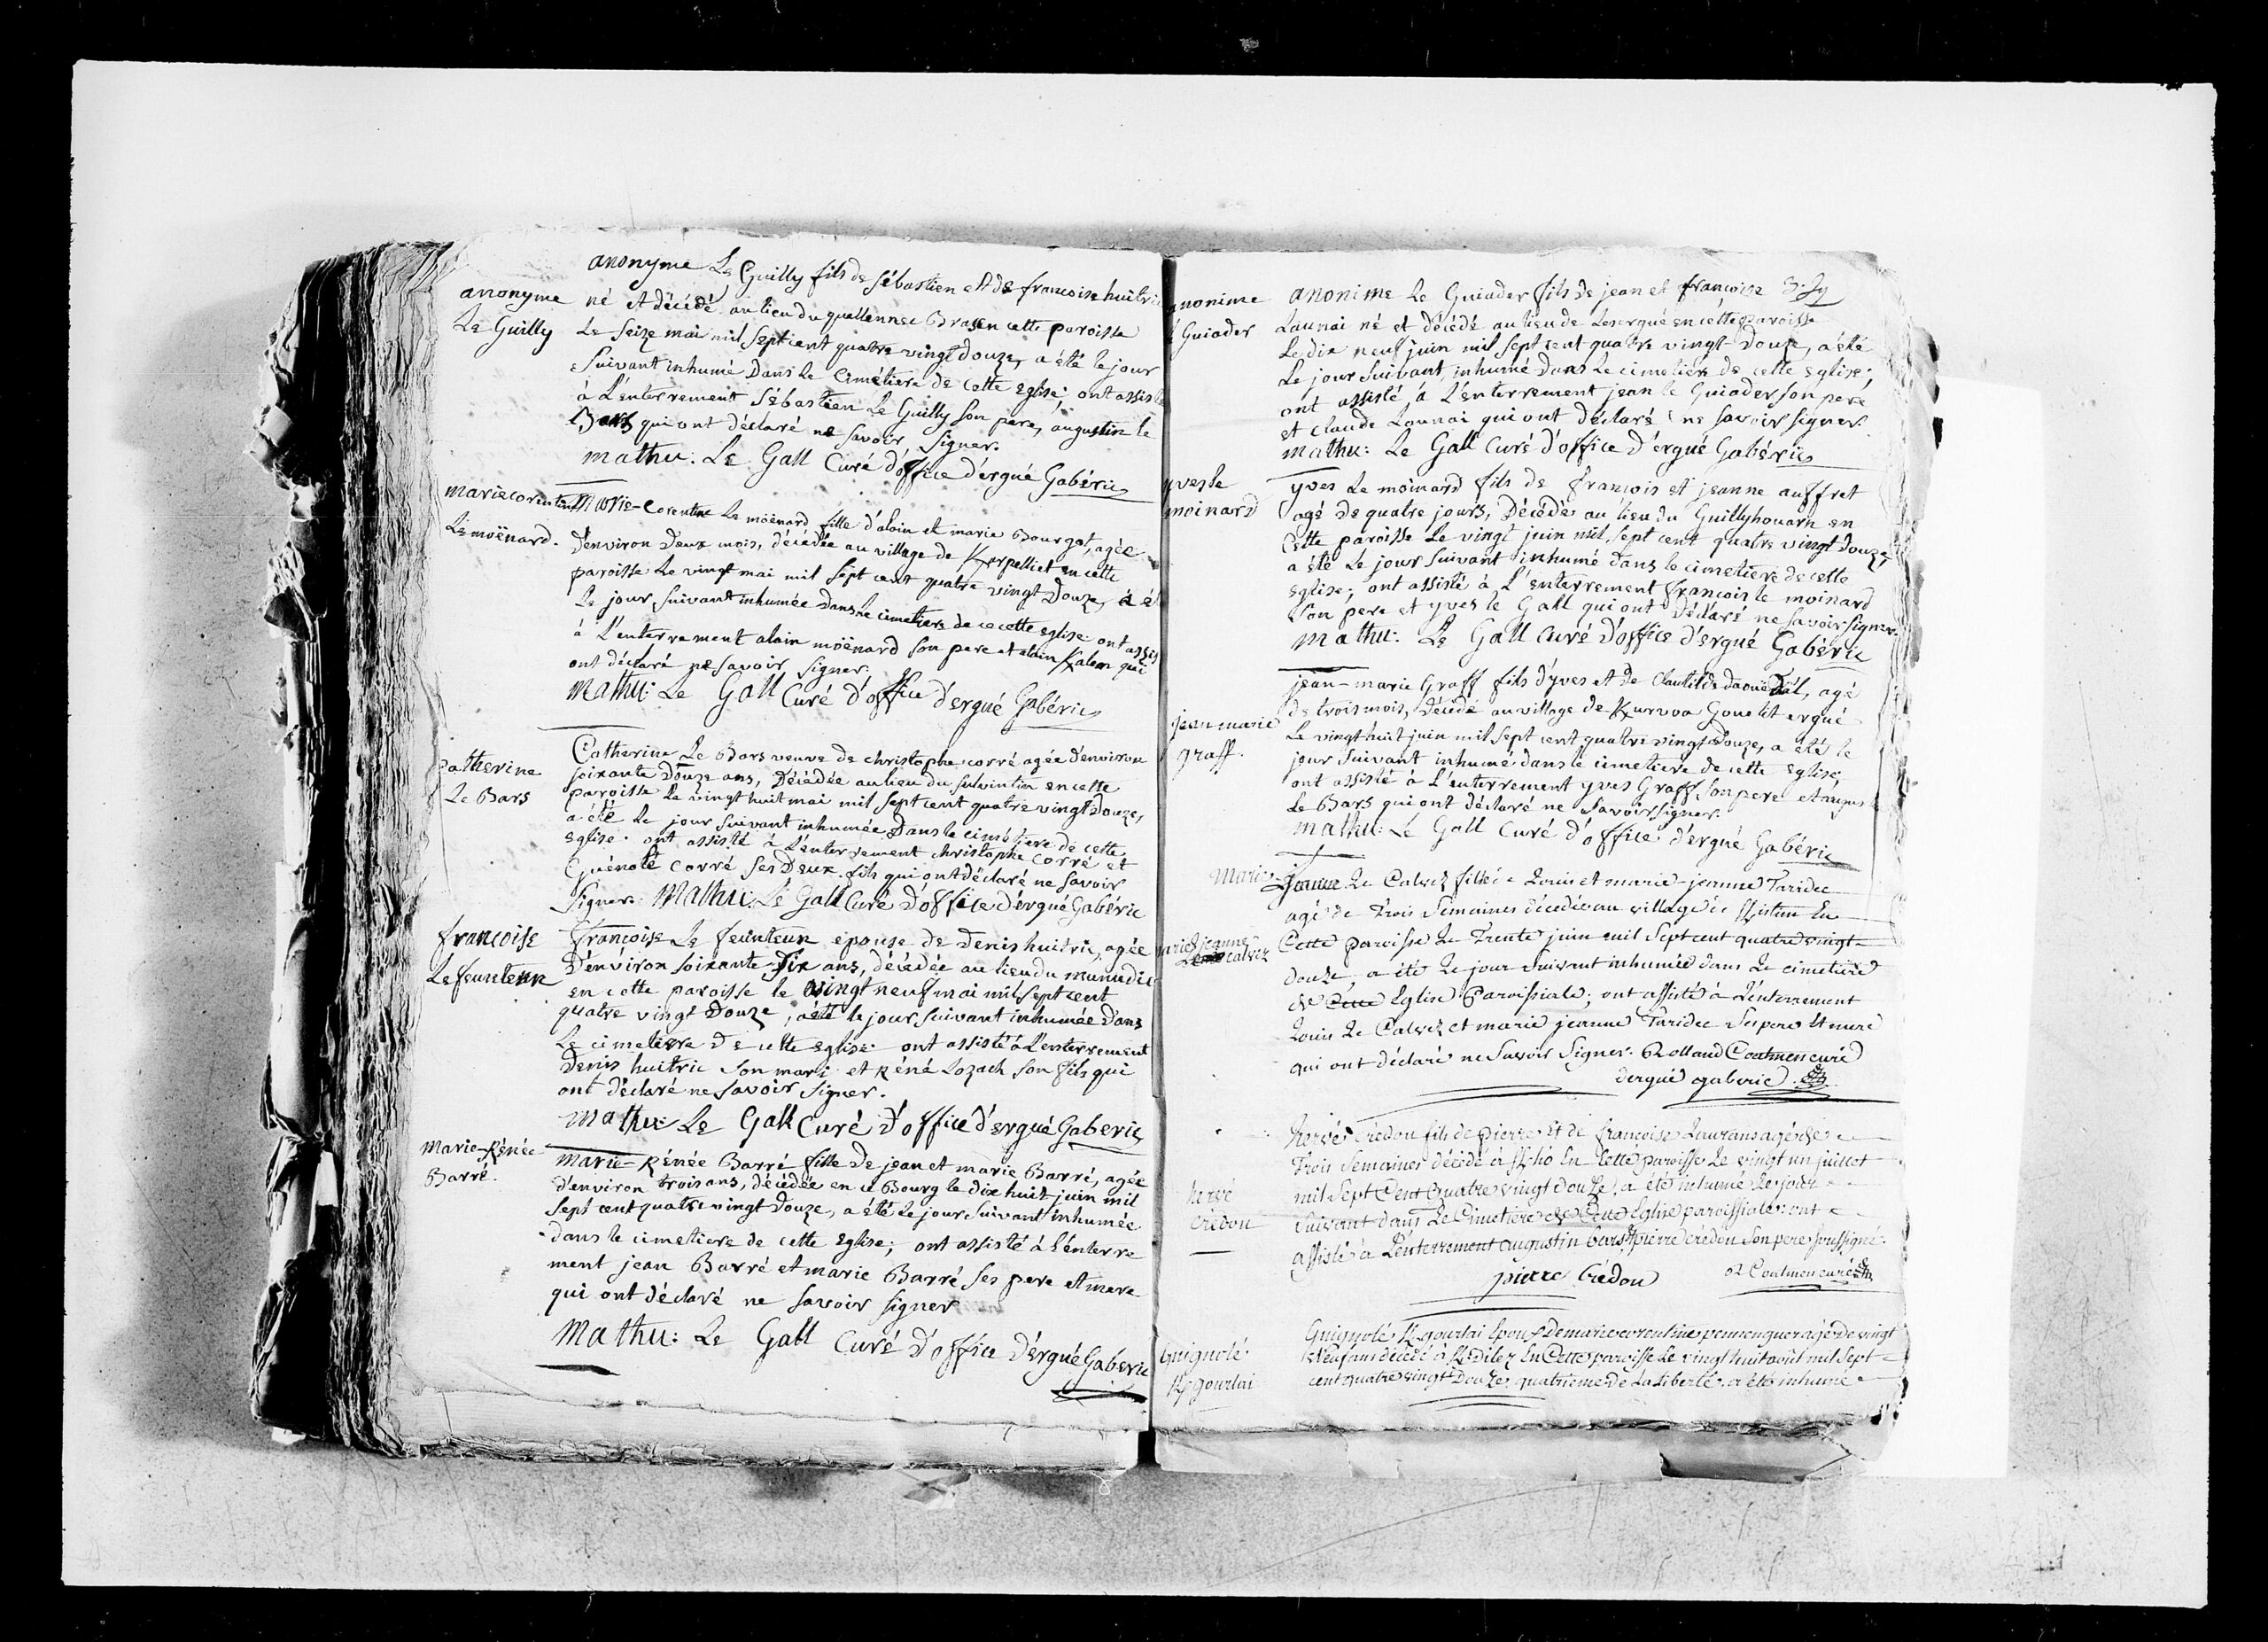 anonyme Le Guilly fils de Sébastien et de francoise huitric
anonyme
Le Guilly
né et décédé au lieu du quellennec Bras en cette paroisse
Le seize mai mil sept cent quatre vingt Douze, a été le jour
suivant inhumé Dans le Cimétiere de cette eglise; ont assisté
à L'enterrement Sébastien Le Guilly son pere, augustin le
Bars qui ont déclaré ne savoir signer.
mathu: Le Gall Curé d'office d'ergué Gabéric
marie corentine
Le moënard.
Marie-Corentine Le moënard fille d'alain et marie Bourgot, agée
d'environ Deux mois, décédée au village de Kerpelliet en cette
paroisse Le vingt mai mil sept cent quatre vingt Douze, a é
Le jour suivant inhumée dans le cimetiere de ce cette eglise ont assis
à L'enterrement alain moënard son pere et alain Kalem qui
ont déclaré ne savoir signer.
Mathu: Le Gall Curé d'office d'ergué Gabéric
Catherine
Le Bars
Catherine Le Bars veuve de christophe corré agée d'environ
soixante Douze ans, Décédée au lieu du Sulvintin en cette
paroisse Le vingt huit mai mil sept cent quatre vingt Douze,
a été Le jour suivant inhumée Dans le cimetiere de cette
eglise. ont assisté à L'enterrement christophe Corré et
Guénolé Corré ses Deux fils qui ont déclaré ne savoir
signer. Mathu: Le Gall Curé d'office d'ergué Gabéric
francoise
Le feunteun
francoise Le feunteun epouse de Denis huitric, agée
D'environ soixante Dix ans, décédée au lieu du munudic
en cette paroisse le vingt neuf mai mil sept cent
quatre vingt Douze, a été le jour suivant inhumée Dans
Le cimetiere De cette eglise. ont assisté à L'enterrement
Denis huitric son mari et Réné Lozach son fils qui
ont déclaré ne savoir signer.
Mathu: Le Gall Curé d'office d'ergué Gaberic
Marie-Rénée
Barré.
marie-Rénée Barré fille De jean et marie Barré, agée
d'environ trois ans, décédée en ce Bourg le dix huit juin mil
sept cent quatre vingt Douze, a été Le jour suivant inhumée
dans le cimetiere de cette eglise; ont assisté à L'enterre
ment jean Barré et marie Barré ses pere et mere
qui ont déclaré ne savoir signer
Mathu: Le Gall Curé d'office d'ergué Gaberic
anonime
Guiader
anonime Le Guiader fils de jean et françoise
Launai né et décédé au lieu de Lezergué en cette paroisse
Le dix neuf juin mil sept cent quatre vingt Douze, a été
Le jour suivant inhumé dans Le cimetiere de cette eglise;
ont assisté à L'enterrement jean le Guiader son pere
et Claude Launai qui ont déclaré ne savoir signer.
Mathu: Le Gall Curé d'office d'ergué Gabéric
yves le
moinard
yves Le moinard fils de francois et jeanne auffret
agé de quatre jours, Décédé au lieu du Guillyhouarn en
Cette paroisse Le vingt juin mil sept cent quatre vingt Douze,
a été Le jour suivant inhumé dans le cimetiere de cette
eglise; ont assisté à L'enterrement francois le moinard
son pere et yves le Gall qui ont déclaré ne savoir signer.
Mathu: Le Gall Curé d'office d'ergué Gabéric
jean marie
Graff.
jean-marie Graff fils d'yves et de Clautilde daouëdal, agé
de trois mois, Décédé au village de Kurvoa Gouelit ergué
Le vingt huit juin mil sept cent quatre vingt Douze, a été le
jour suivant inhumé dans le cimetiere de cette eglise;
ont assisté à L'enterrement yves Graff son pere et augus
Le Bars qui ont déclaré ne savoir signer.
Mathu: Le Gall Curé d'office d'ergué Gabéric
marie jeanne
Le calvez
Marie Jeanne Le Calvez fille de Louis et marie-jeanne Taridec
agé de Trois semaines décédée au village de En
Cette paroisse Le Trente juin mil sept cent quatre vingt
douze, a été Le jour suivant inhumée dans Le cimetiere
de Cette Eglise Paroissiale; ont assisté à L'enterrement
Louis Le Calvez et marie jeanne Taridec ses pere et mere
qui ont déclaré ne savoir signer. Rolland Coatmen curé
dergué gaberic.
hervé
crédou
hervé Crédou fils de pierre et de francoise Laurans agé de
Trois semaines décédé à En Cette paroisse Le vingt un juillet
mil sept Cent quatre vingt douze, a été inhumé Le jour
suivant dans Le Cimetiere de Cette Eglise paroissiale: ont
assisté à L'enterrement augustin bars et pierre crédou son pere soussigné.
pierre Crédou R Coatmen curé
Guignolé
K/gourlai
Guignolé K/gourlai Epoux De marie corentine pennenquer agé de vingt
et neuf ans décédé à K/dilez En Cette paroisse Le vingt huit août mil sept
cent quatre vingt Douze, quatrieme de La Liberté. a été inhumé